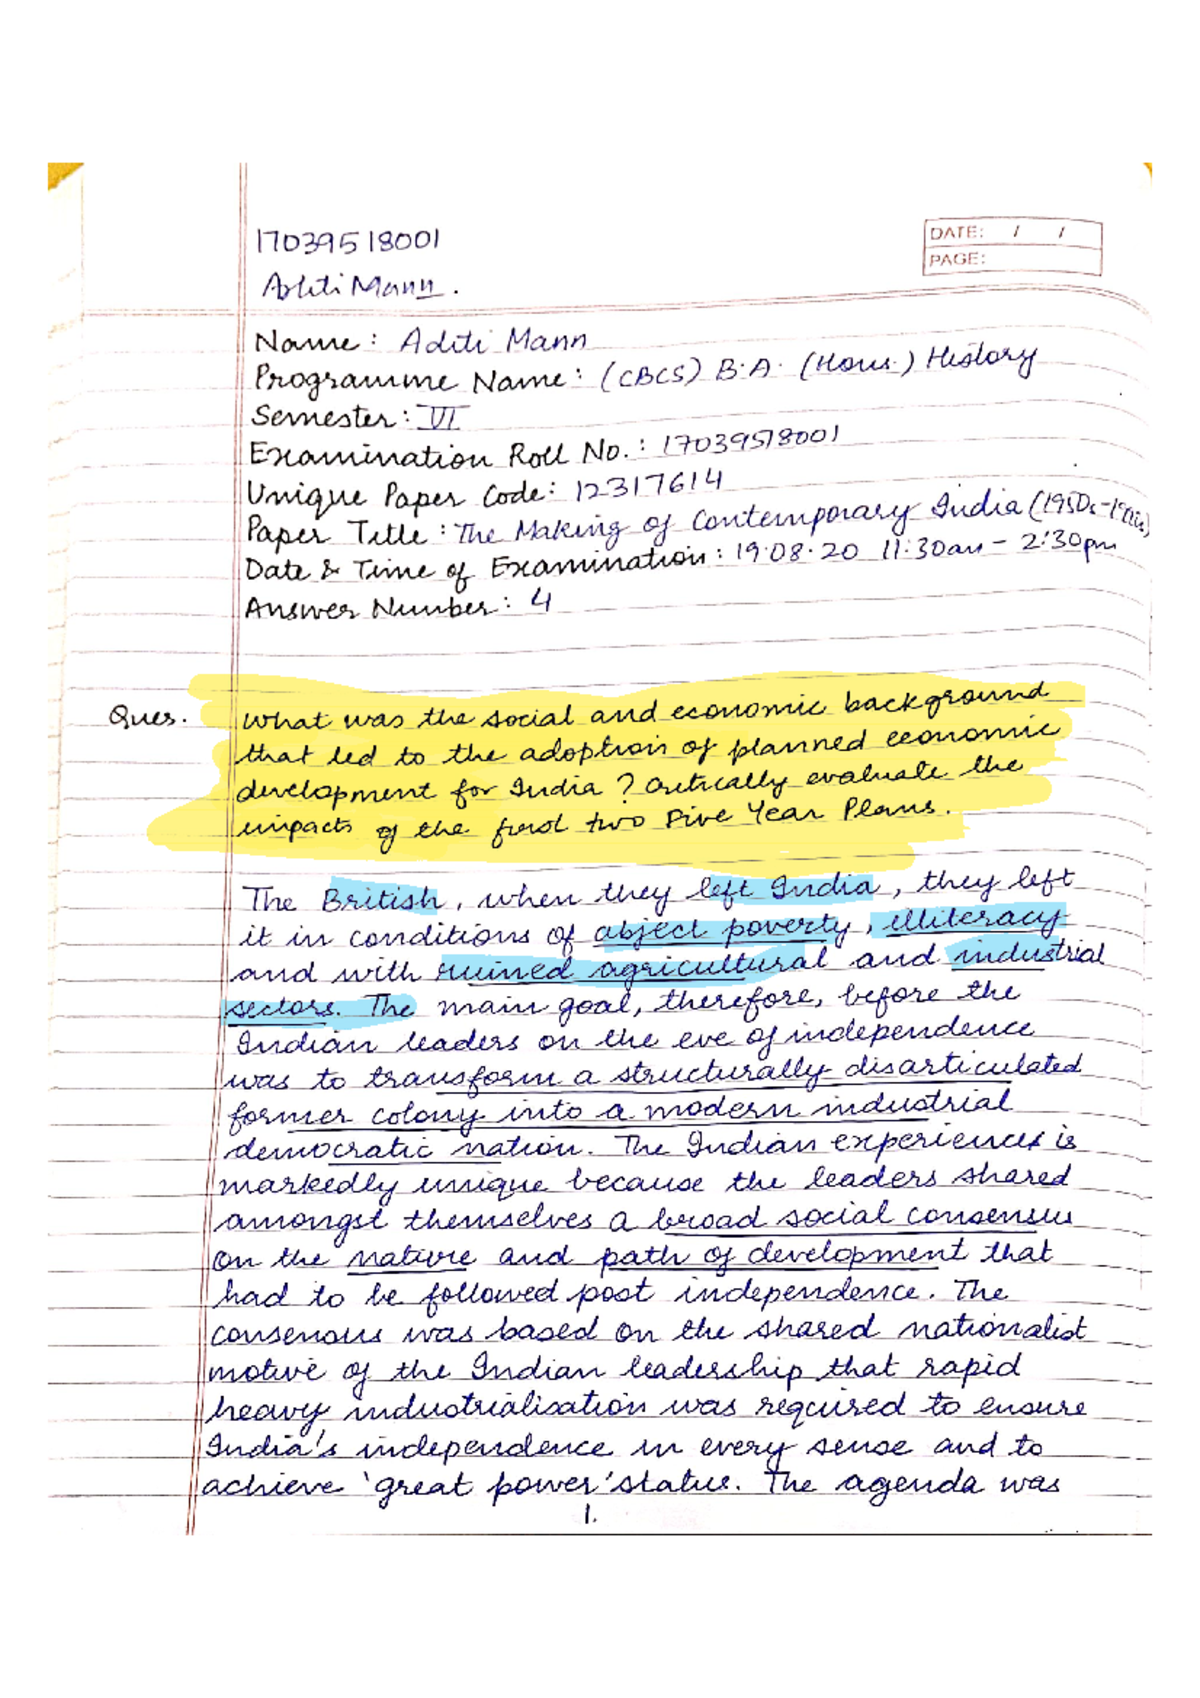 17039518001
DATE: / /
PAGE:
Aditi Mann.
Name: Aditi Mann
Programme Name: (CBCS) B.A. (Hons.) History
Semester: VI
Examination Roll No.: 17039518001
Unique Paper Code: 12317614
Paper Title: The Making of Contemporary India (1950s-
Date & Time of Examination: 19.08.20 11:30am - 2:30pm
Answer Number: 4
Ques. What was the social and economic background
that led to the adoption of planned economic
development for India? Critically evaluate the
impacts of the first two Five Year Plans.
The British, when they left India, they left
it in conditions of abject poverty, illiteracy
and with ruined agricultural and industrial
sectors. The main goal, therefore, before the
Indian leaders on the eve of independence
was to transform a structurally disarticulated
former colony into a modern industrial
democratic nation. The Indian experiences is
markedly unique because the leaders shared
amongst themselves a broad social consensus
on the nature and path of development that
had to be followed post independence. The
consensus was based on the shared nationalist
motive of the Indian leadership that rapid
heavy industrialisation was required to ensure
India's independence in every sense and to
achieve 'great power' status. The agenda was
1.